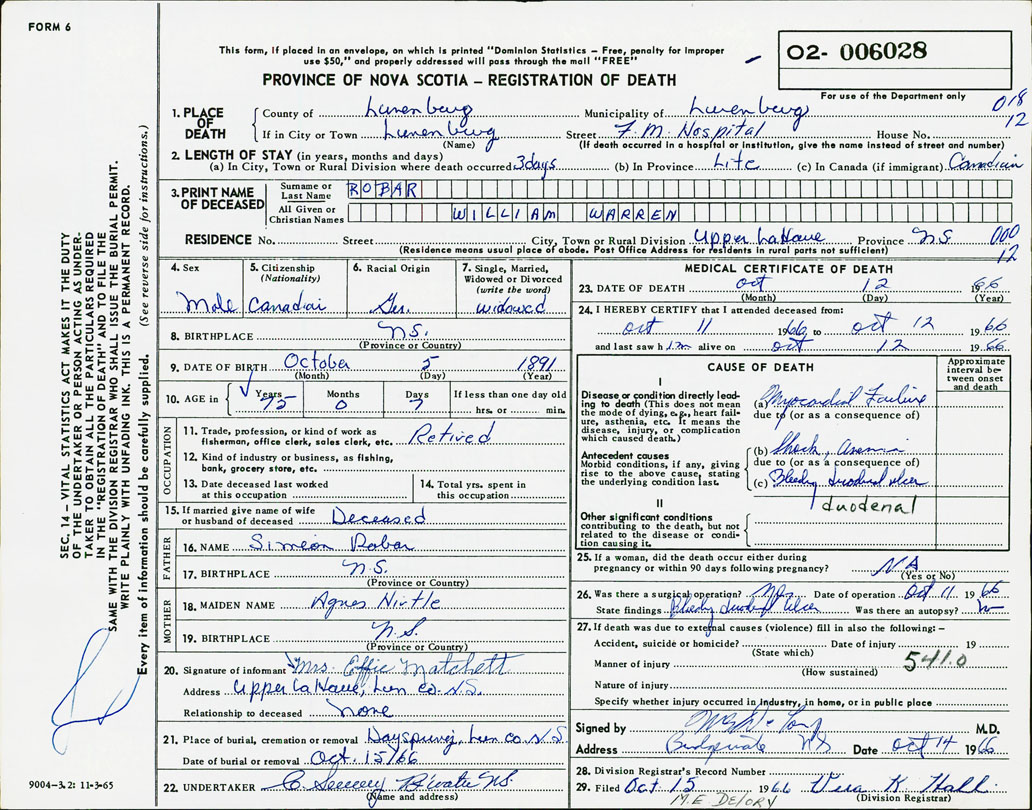 FORM 6
This form, if placed in an envelope, on which is printed "Dominion Statistics – Free, penalty for improper
use $50," and properly addressed will pass through the mail "FREE"
PROVINCE OF NOVA SCOTIA – REGISTRATION OF DEATH
02- 006028
For use of the Department only
018
12
1. PLACE OF DEATH
County of Lunenburg Municipality of Lunenburg
If in City or Town Lunenburg Street F. M. Hospital House No.
(Name) (If death occurred in a hospital or institution, give the name instead of street and number)
2. LENGTH OF STAY (in years, months and days)
(a) In City, Town or Rural Division where death occurred 3 days (b) In Province Life (c) In Canada (if immigrant) Canadian
3. PRINT NAME OF DECEASED
Surname or Last Name ROBAR
All Given or Christian Names WILLIAM WARREN
RESIDENCE No. Street City, Town or Rural Division Upper LaHave Province N.S. 000
(Residence means usual place of abode. Post Office Address for residents in rural parts not sufficient) 12
4. Sex Male
5. Citizenship (Nationality) Canadian
6. Racial Origin Ger.
7. Single, Married, Widowed or Divorced (write the word) widowed
8. BIRTHPLACE N.S.
(Province or Country)
9. DATE OF BIRTH October 5 1891
(Month) (Day) (Year)
10. AGE in Years 75 Months 0 Days 7 If less than one day old hrs. or min.
OCCUPATION
11. Trade, profession, or kind of work as fisherman, office clerk, sales clerk, etc. Retired
12. Kind of industry or business, as fishing, bank, grocery store, etc.
13. Date deceased last worked at this occupation
14. Total yrs. spent in this occupation
15. If married give name of wife or husband of deceased Deceased
FATHER
16. NAME Simeon Robar
17. BIRTHPLACE N.S.
(Province or Country)
MOTHER
18. MAIDEN NAME Agnes Hirtle
19. BIRTHPLACE N.S.
(Province or Country)
20. Signature of informant Mrs. Effie Matchett
Address Upper LaHave, Lun co. N.S.
Relationship to deceased none
21. Place of burial, cremation or removal Dayspring, Lun co. N.S.
Date of burial or removal Oct. 15/66
22. UNDERTAKER C. Sweeny B'water NS
(Name and address)
MEDICAL CERTIFICATE OF DEATH
23. DATE OF DEATH Oct 12 1966
(Month) (Day) (Year)
24. I HEREBY CERTIFY that I attended deceased from:
Oct 11 1966 to Oct 12 1966
and last saw him alive on Oct 12 1966
CAUSE OF DEATH
Approximate interval between onset and death
I
Disease or condition directly leading to death (This does not mean the mode of dying, e.g., heart failure, asthenia, etc. It means the disease, injury, or complication which caused death.)
(a) Myocardial Failure
due to (or as a consequence of)
Antecedent causes
Morbid conditions, if any, giving rise to the above cause, stating the underlying condition last.
(b) Shock,
due to (or as a consequence of)
(c) Bleeding duodenal ulcer
duodenal
II
Other significant conditions contributing to the death, but not related to the disease or condition causing it.
25. If a woman, did the death occur either during pregnancy or within 90 days following pregnancy? NA
(Yes or No)
26. Was there a surgical operation? Yes Date of operation Oct 11 1966
State findings Bleeding duodenal ulcer Was there an autopsy? No
27. If death was due to external causes (violence) fill in also the following: –
Accident, suicide or homicide? Date of injury 19
(State which)
Manner of injury 541.0
(How sustained)
Nature of injury
Specify whether injury occurred in industry, in home, or in public place
Signed by M.D.
Address Bridgewater NS Date Oct 14 1966
28. Division Registrar's Record Number
29. Filed Oct 15 1966 Vera K. Hall
(Division Registrar)
M.E. DELORY
SEC. 14 – VITAL STATISTICS ACT MAKES IT THE DUTY
OF THE UNDERTAKER OR PERSON ACTING AS UNDER-
TAKER TO OBTAIN ALL THE PARTICULARS REQUIRED
IN THE "REGISTRATION OF DEATH" AND TO FILE THE
SAME WITH THE DIVISION REGISTRAR WHO SHALL ISSUE THE BURIAL PERMIT.
WRITE PLAINLY WITH UNFADING INK. THIS IS A PERMANENT RECORD.
Every item of information should be carefully supplied. (See reverse side for instructions.)
9004-3.2: 11-3-65